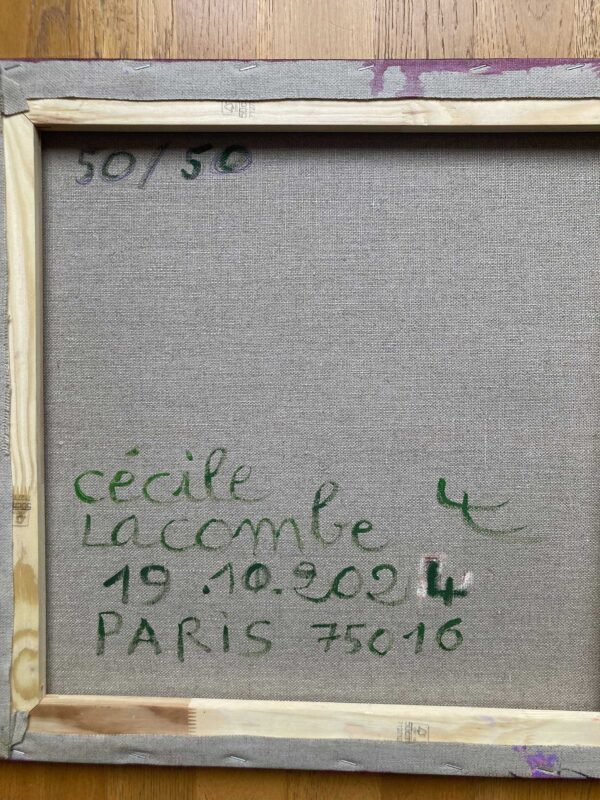 50/50
cécile
Lacombe
19.10.2024
PARIS 75016